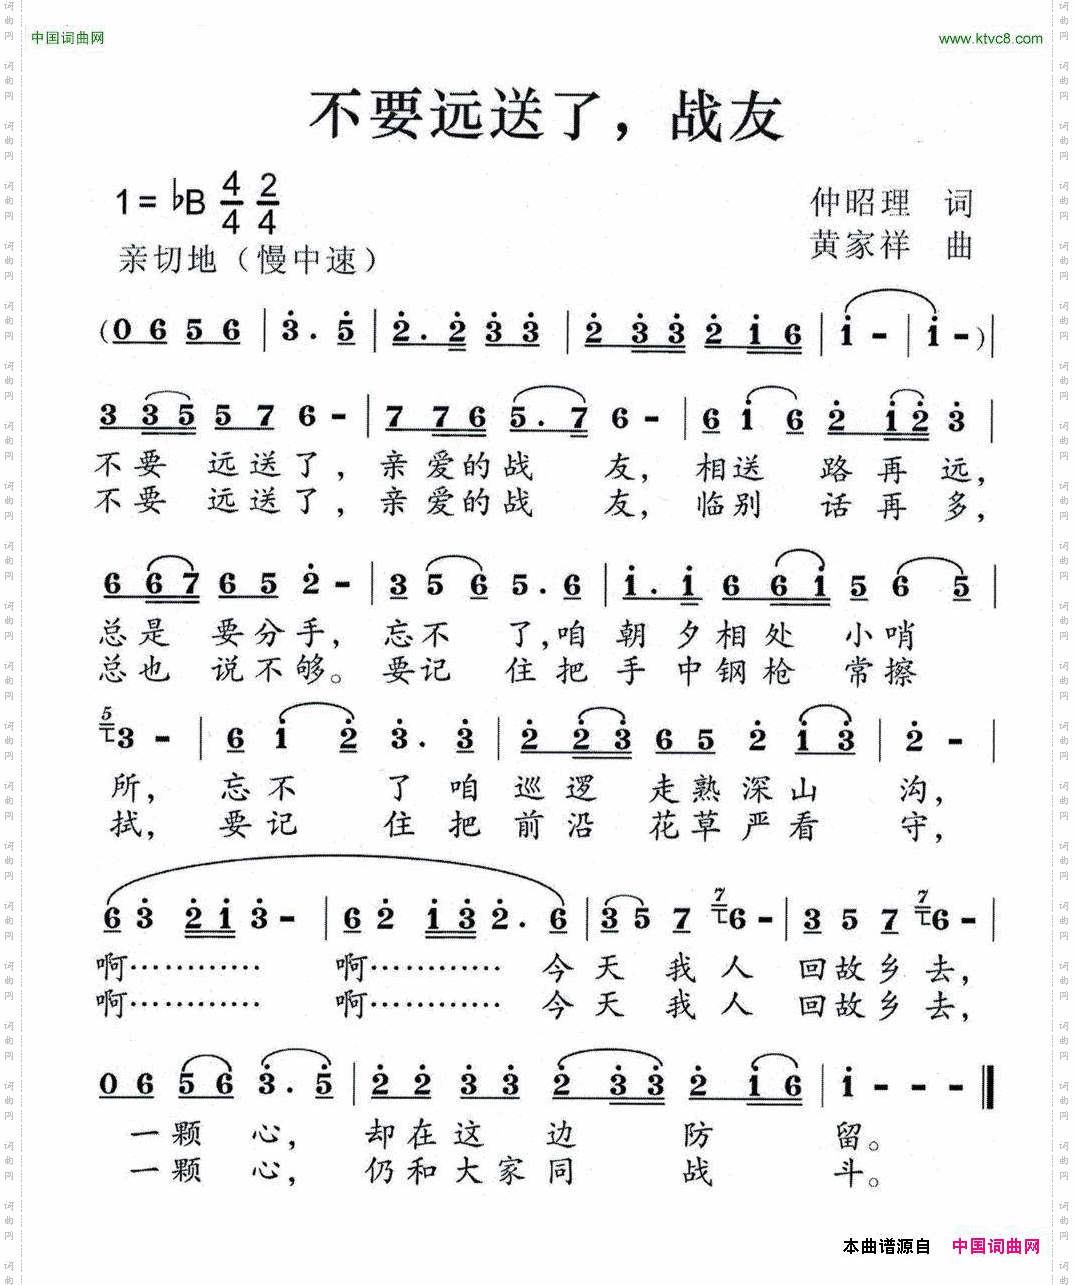 中国词曲网 www.ktvc8.com
不要远送了，战友
1=♭B 4/4 2/4
仲昭理 词
黄家祥 曲
亲切地（慢中速）
(0 6 5 6 | 3. 5 | 2. 2 3 3 | 2 3 3 2 1 6 | 1 - | 1 - )|
3 3 5 5 7 6 - | 7 7 6 5. 7 6 - | 6 1 6 2 1 2 3 |
不要 远送了，亲爱的战 友，相送 路再远，
不要 远送了，亲爱的战 友，临别 话再多，
6 6 7 6 5 2 - | 3 5 6 5. 6 | 1. 1 6 6 1 5 6 5 |
总是 要分手，忘不 了，咱朝夕相处 小哨
总也 说不够。要记 住把手中钢枪 常擦
5 3 - | 6 1 2 3. 3 | 2 2 3 6 5 2 1 3 | 2 - |
所，忘不 了咱巡逻 走熟深山 沟，
拭，要记 住把前沿 花草严看 守，
6 3 2 1 3 - | 6 2 1 3 2. 6 | 3 5 7 7 6 - | 3 5 7 7 6 - |
啊………… 啊………… 今天 我人 回故乡去，
啊………… 啊………… 今天 我人 回故乡去，
0 6 5 6 3. 5 | 2 2 3 3 2 3 3 2 1 6 | 1 - - - ‖
一颗 心，却在这 边 防 留。
一颗 心，仍和大家同 战 斗。
本曲谱源自 中国词曲网
词曲网